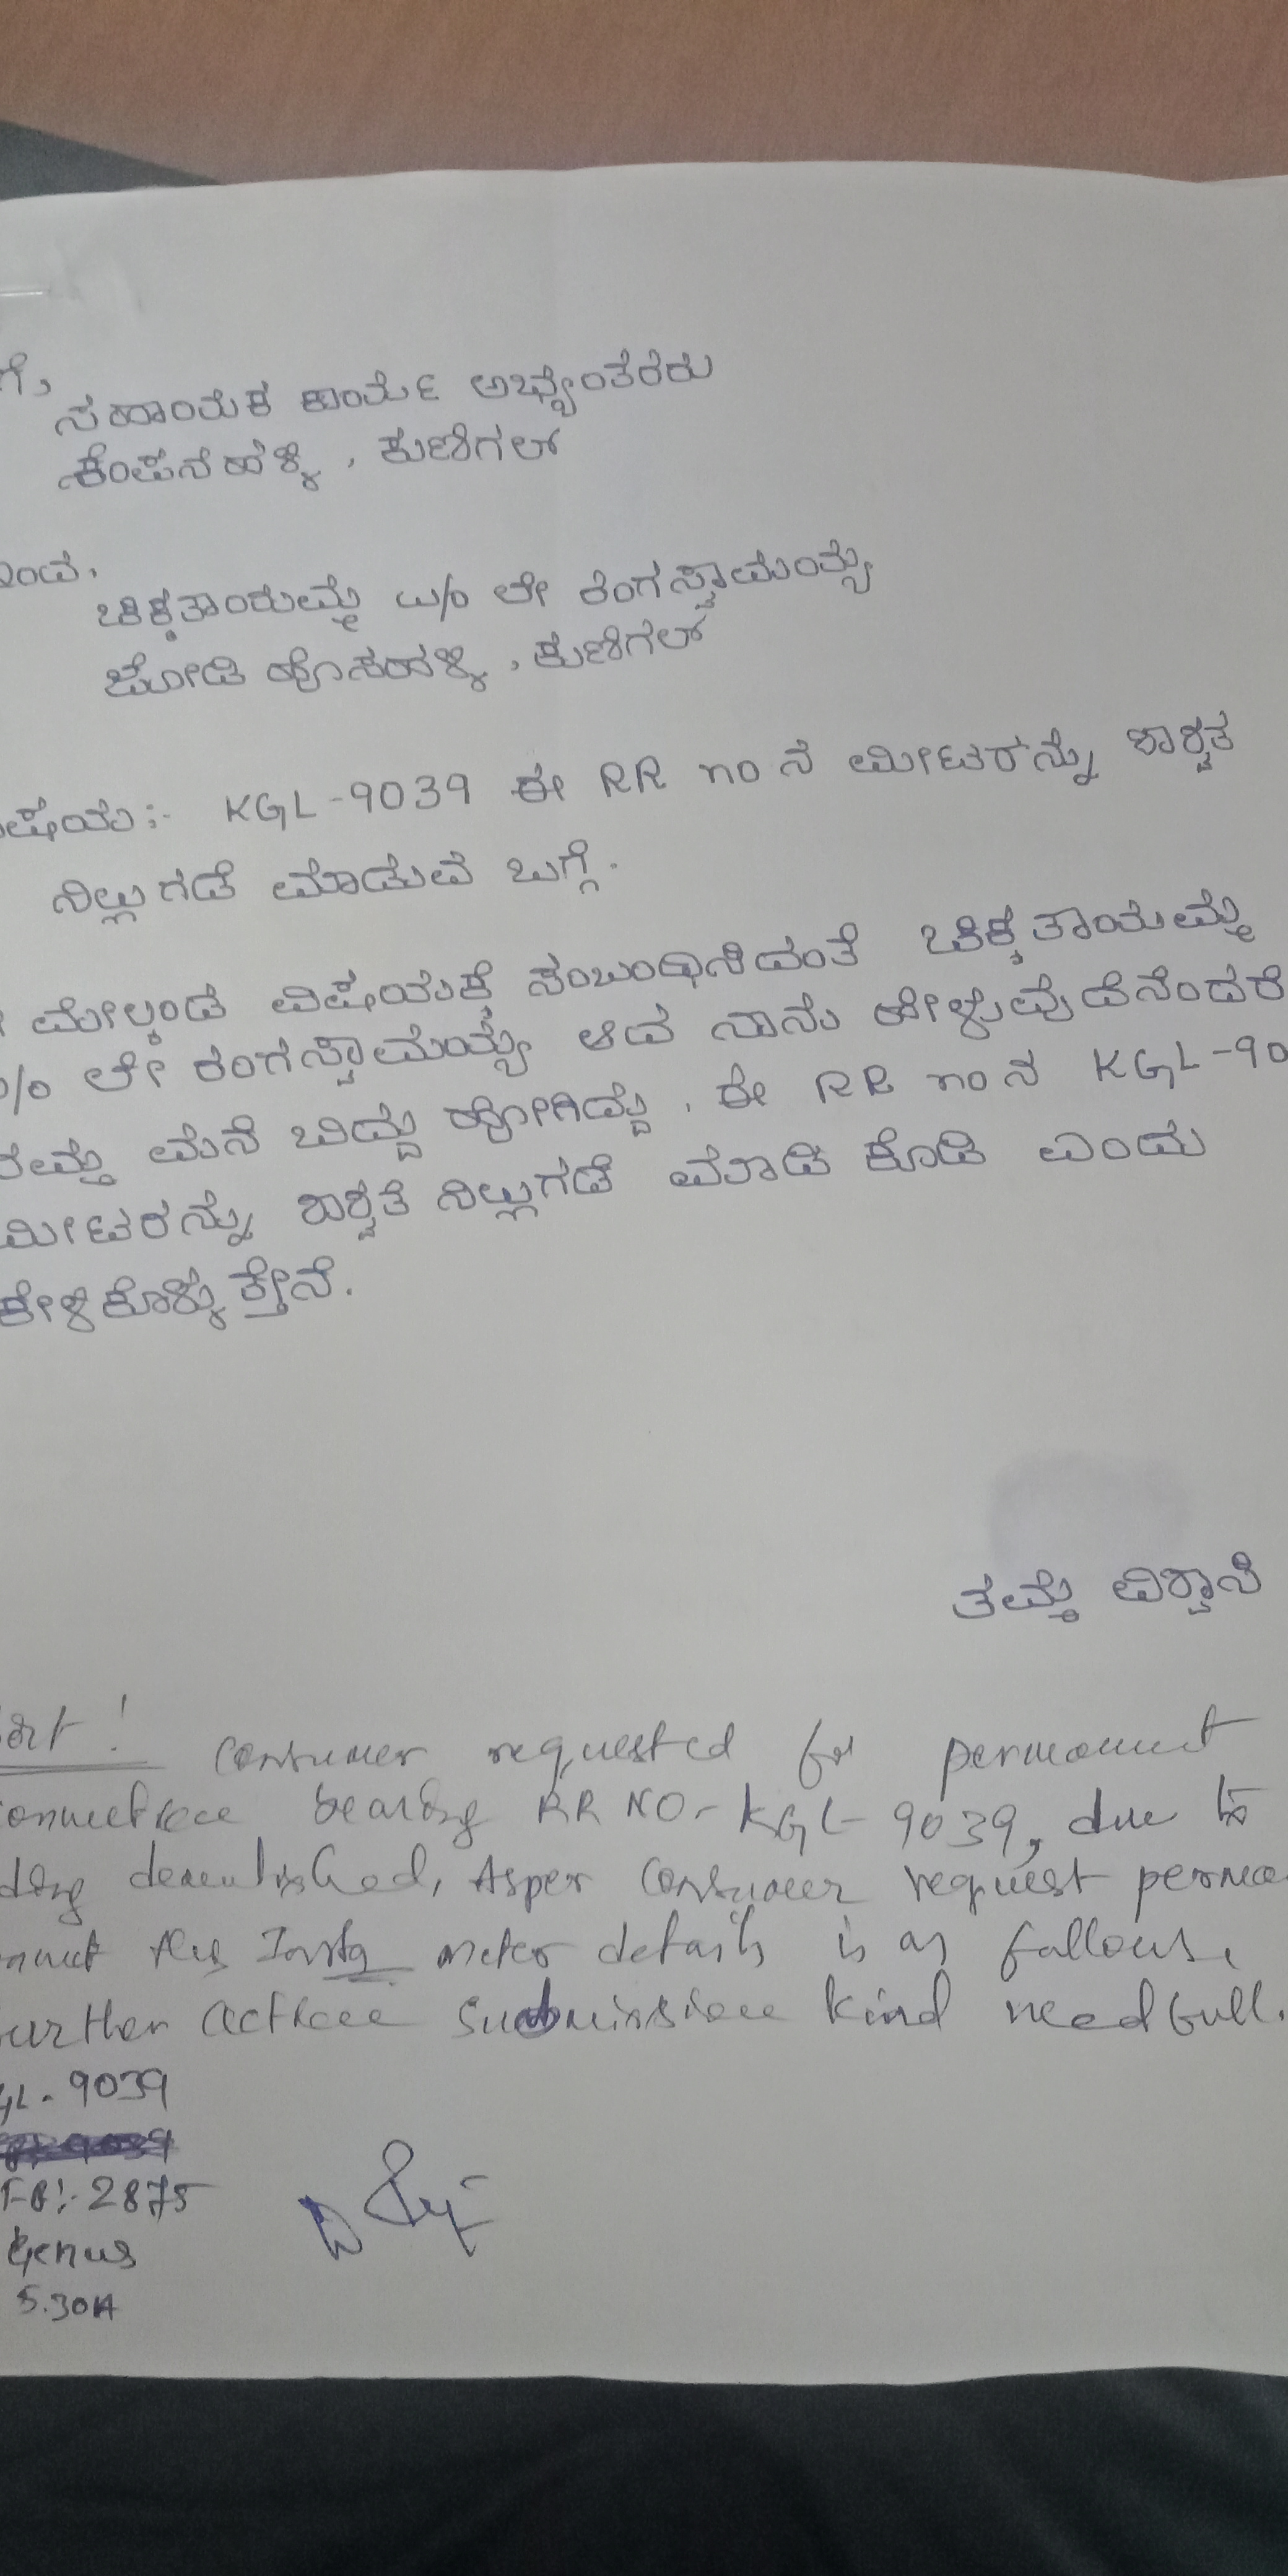 ಗೆ,
ಸಹಾಯಕ ಕಾರ್ಯ ಅಭ್ಯಂತರರು
ಕೆಂಪನಹಳ್ಳಿ, ಕುಣಿಗಲ್
ಇಂದ,
ಚಿಕ್ಕತಾಯಮ್ಮ w/o ಲೇ ರಂಗಸ್ವಾಮಯ್ಯ
ಜೋಡಿ ಹೊಸಹಳ್ಳಿ, ಕುಣಿಗಲ್
ಷಯ:- KGL-9039 ಈ RR no ನ ಮೀಟರನ್ನು ಶಾಶ್ವತ
ನಿಲ್ಲುಗಡೆ ಮಾಡುವ ಬಗ್ಗೆ.
ಮೇಲ್ಕಂಡ ವಿಷಯಕ್ಕೆ ಸಂಬಂಧಿಸಿದಂತೆ ಚಿಕ್ಕತಾಯಮ್ಮ
/o ಲೇ ರಂಗಸ್ವಾಮಯ್ಯ ಆದ ನಾನು ಹೇಳುವುದೆನೆಂದರೆ
ಮನೆ ಬಿದ್ದು ಹೋಗಿದ್ದು, ಈ RR no ನ KGL-90
ಮೀಟರನ್ನು ಶಾಶ್ವತ ನಿಲ್ಲುಗಡೆ ಮಾಡಿ ಕೊಡಿ ಎಂದು
ಕೇಳಿಕೊಳ್ಳುತ್ತೇನೆ.
ತಮ್ಮ ವಿಶ್ವಾಸಿ
ort! Consumer requested for permanent
connection bearing RR NO-KGL-9039, due to
ding demolished, Asper Consumer request perma
nnect this Insta meter details is as follows,
urther action submission kind needfull.
GL-9039
FR:-2875
Genus
5.30A